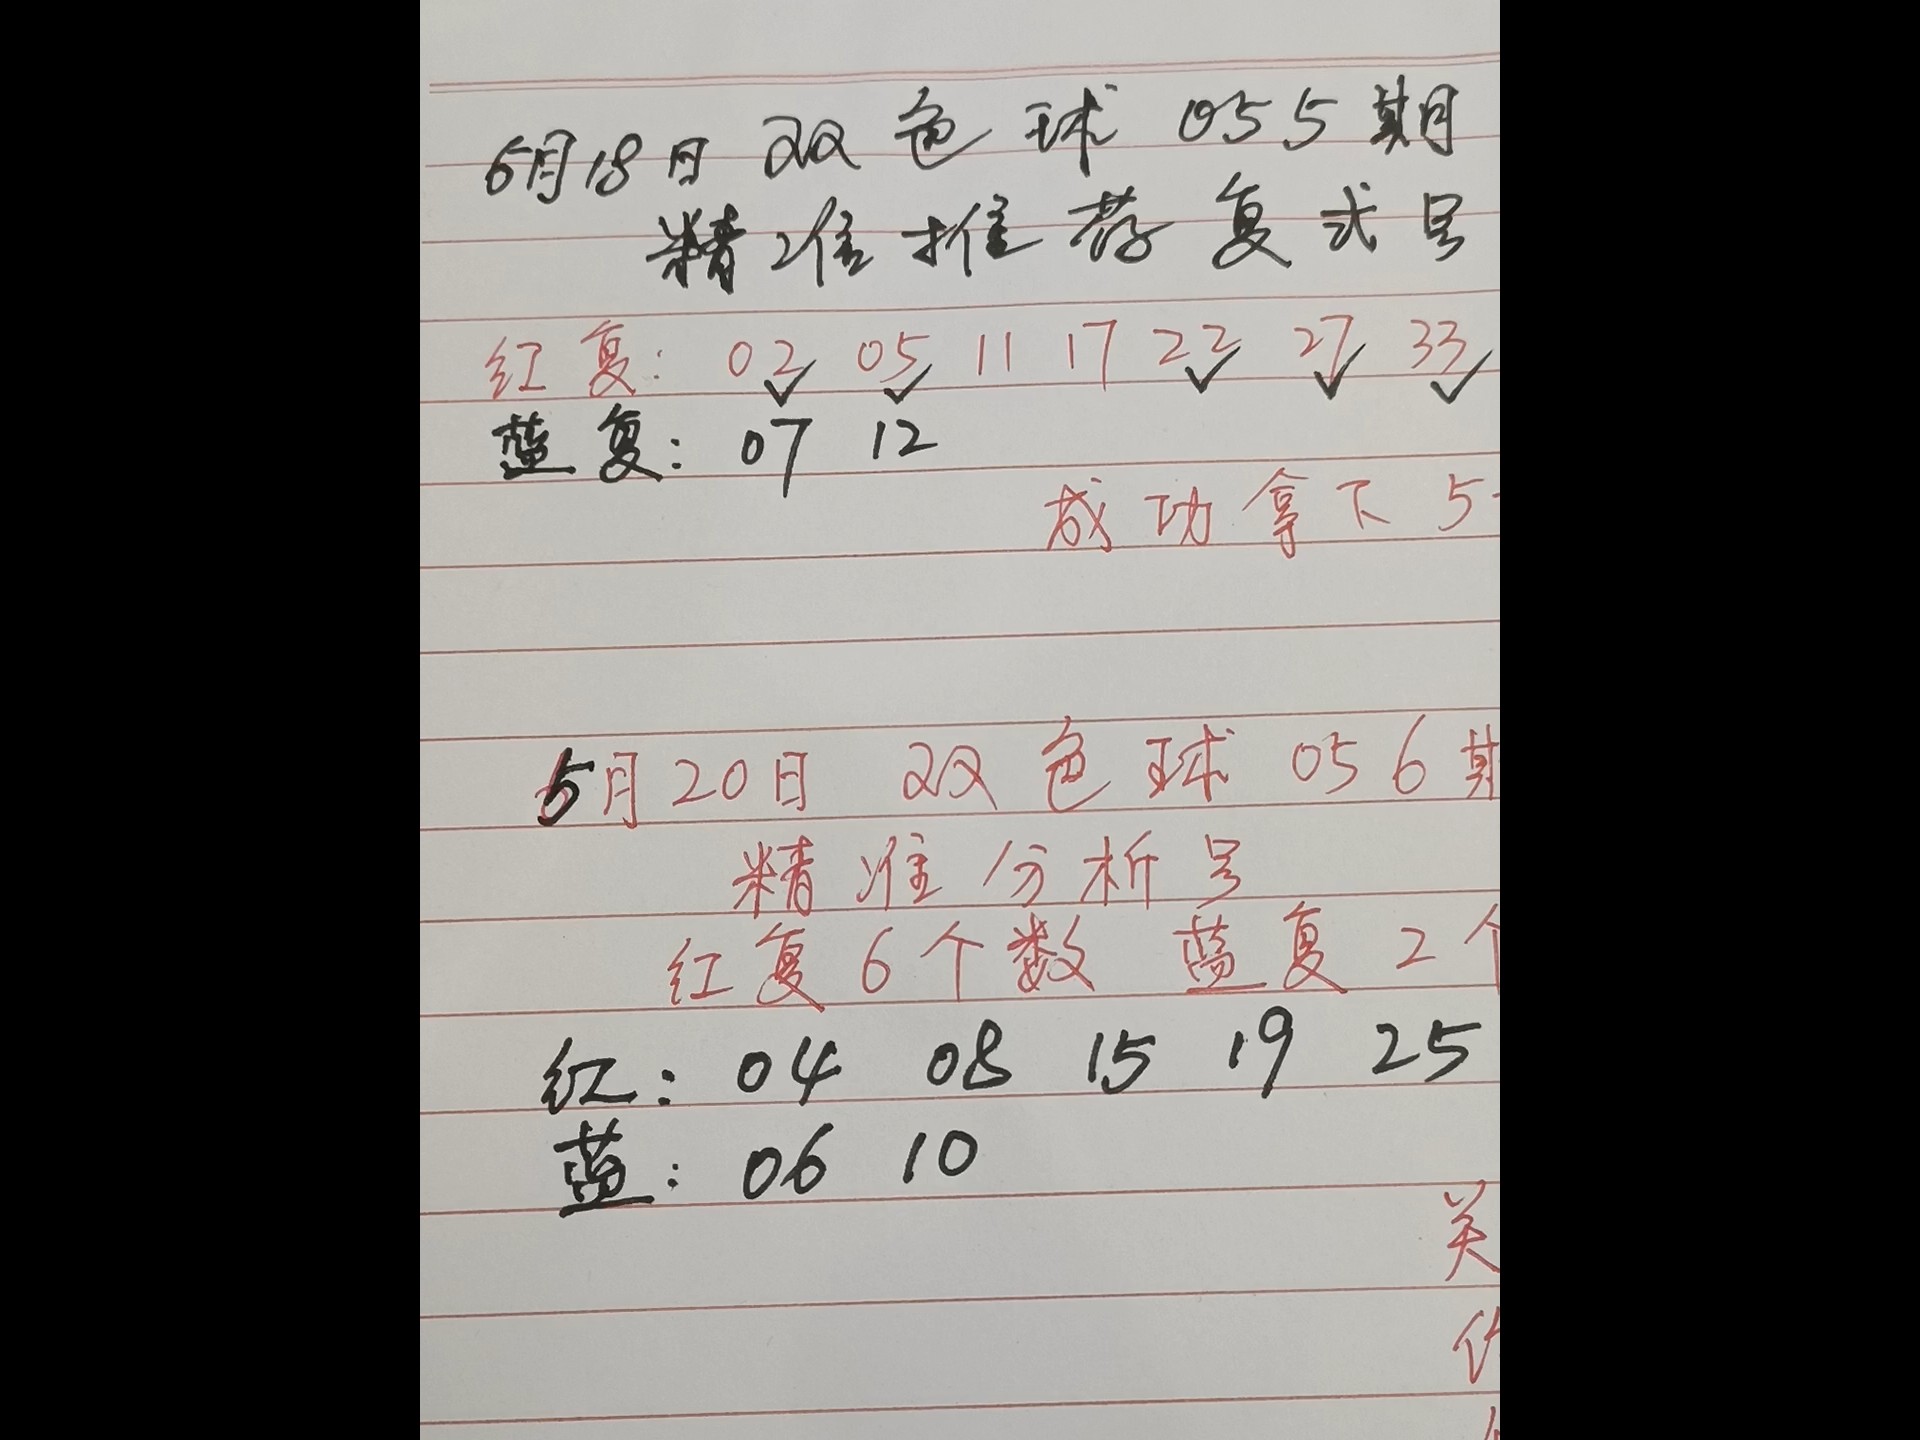 6月18日 双色球 055期
精准推荐复式号
红复: 02 05 11 17 22 27 33
蓝复: 07 12
成功拿下 5
5月20日 双色球 056期
精准分析号
红复6个数 蓝复2个
红: 04 08 15 19 25
蓝: 06 10
关